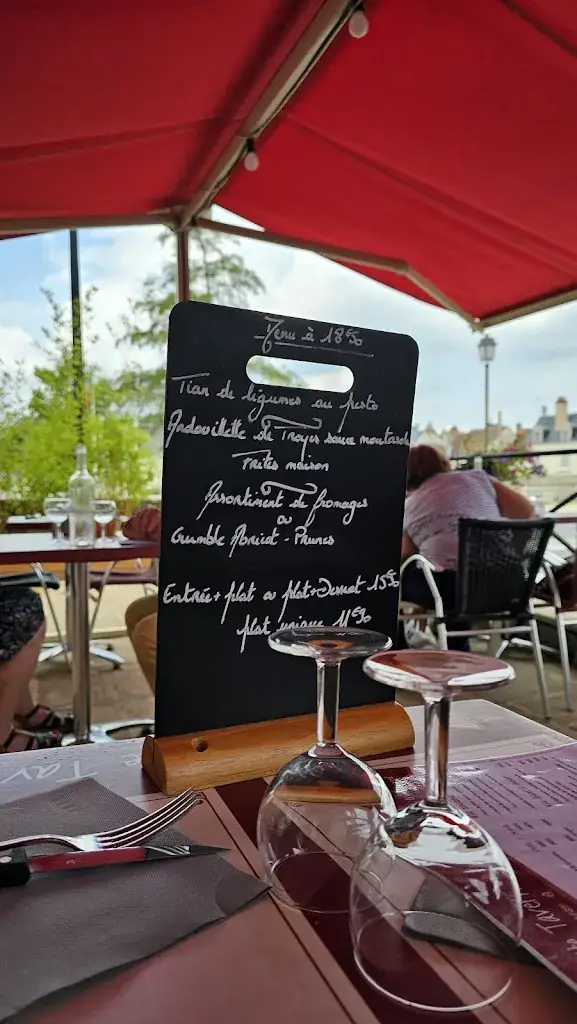 Menu à 18€50
Tian de légumes au pesto
Andouillette de Troyes sauce moutarde
Frites maison
Assortiment de fromages
ou
Crumble Abricot - Prunes
Entrée + plat ou plat + Dessert 15€50
plat unique 11€90
Tav
Taver